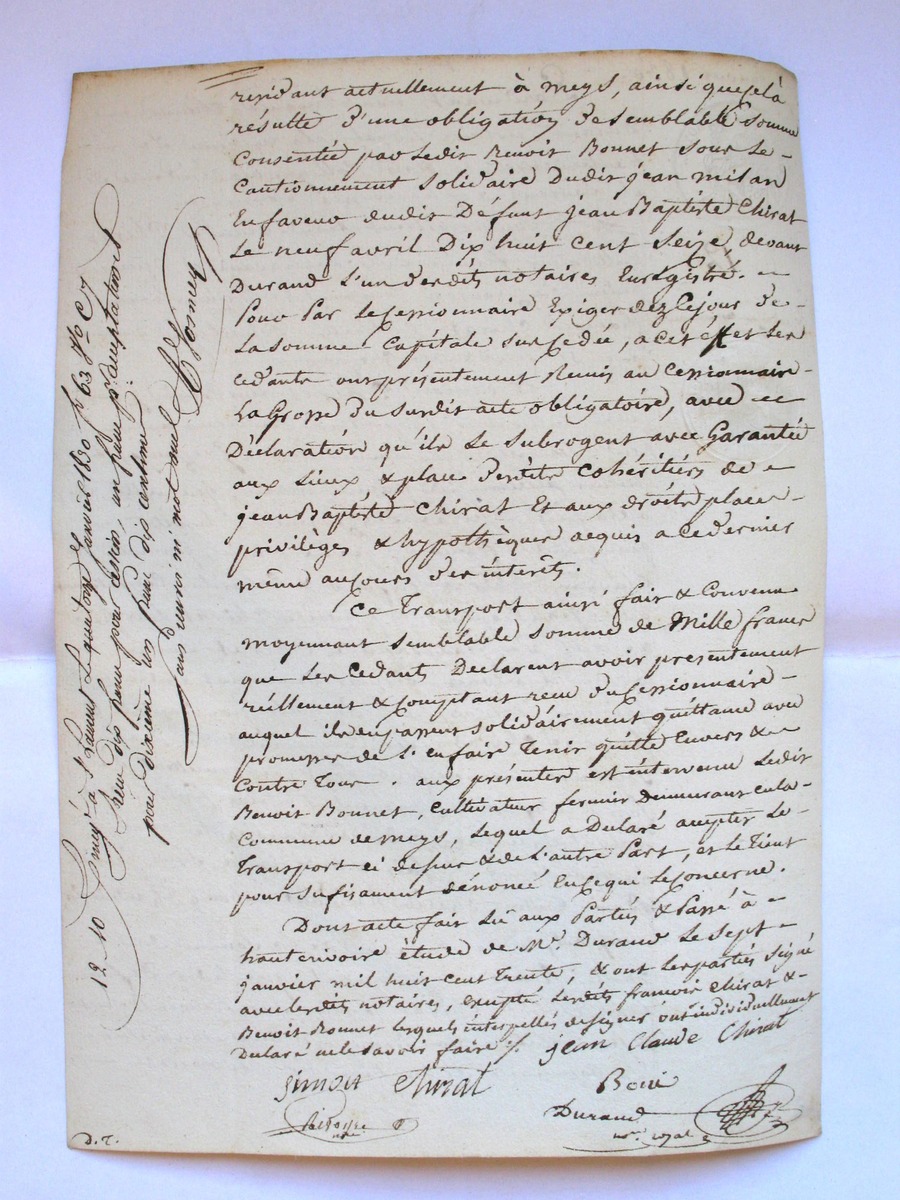 residant actuellement à meys, ainsi que cela
résulte d'une obligation de semblable somme
Consentie par Ledit Benoit Bonnet sous Le
Cautionnement Solidaire Dudit jean milan
En faveur dudit Défunt jean Baptiste Chirat
Le neuf avril Dix huit Cent Seize, devant
Durand L'un desdits notaires Enregistré. —
Pour Par Le Cessionnaire Exiger dez Ce jour de
La somme Capitale sus Cedée, a cet effet Les
cedants ont présentement Remis au Cessionnaire
La Grosse du susdit acte obligatoire, avec
Déclaration qu'ils Le subrogent avec Garantie
aux Lieux & place desdits Cohéritiers de
jean Baptiste Chirat Et aux droits, places
privilèges & hypothèques acquis a ce dernier
même au Cours des intérêts.
Ce Transport ainsi fait & Convenu
moyennant semblable somme de Mille francs
que Les Cedants Déclarent avoir présentement
réellement & Comptant reçu du Cessionnaire
auquel ils en passent solidairement quittance avec
promesse de L'en faire Tenir quitte Envers &
Contre Tous. aux présentes est intervenu Ledit
Benoit Bonnet, Cultivateur fermier Demeurant en la
Commune de meys, Lequel a Déclaré accepter Le
Transport ci dessus & de L'autre Part, et Le Tient
pour sufisament dénoncé En ce qui Le Concerne.
Dont acte fait Lu aux Parties & Passé à
hauterivoire étude de Me. Durand Le sept
janvier mil huit cent Trente, & ont Les parties signé
avec lesdits notaires, excepté Lesdits francois Chirat &
Benoit Bonnet Lesquels interpellés de signer ont individuellement
Déclaré ne le savoir faire ./.
jean Claude Chirat
Simon Chirat
Durand
nre. royal
D. T.
12 . 10
à St Laurent Le quatorze janvier 1830 fo 63 Vo C 7
Reçu dix francs pour cession, un franc pr. acceptation &
pour dixième un franc dix centimes
sans renvoi ni mot nul